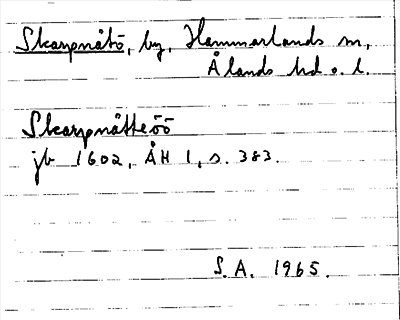 Skarpnåtö, by, Hammarlands sn,
Ålands hd o. l.
Skarpnåtteöö
jb 1602, ÅH 1, s. 383.
S.A. 1965.